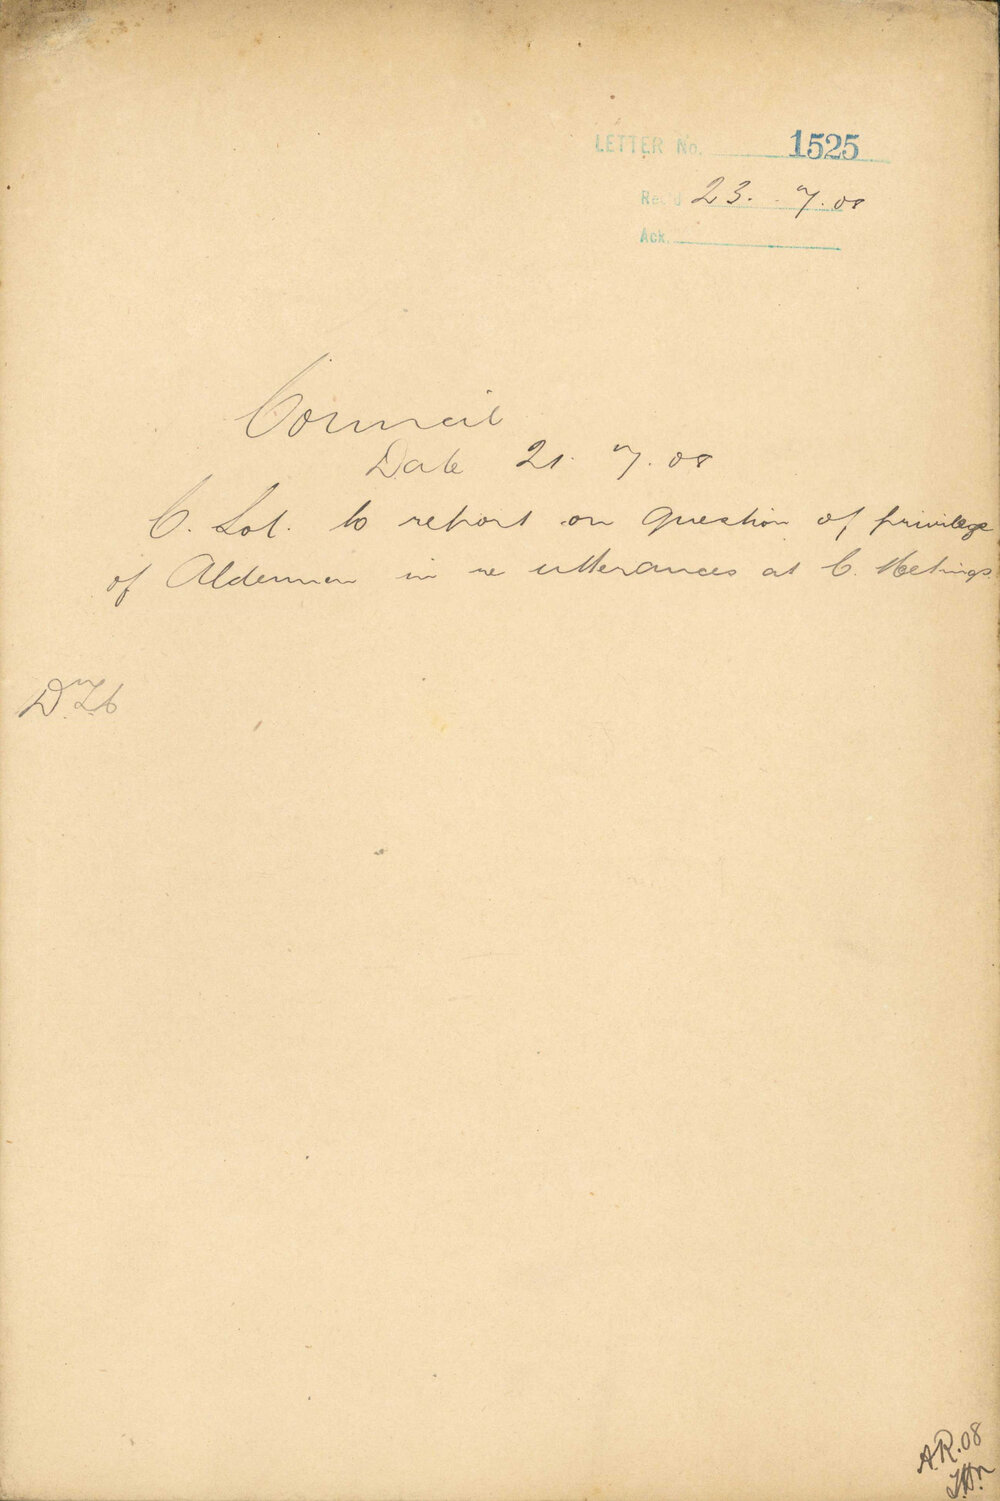 LETTER No. 1525
Rec'd 23. 7. 08
Ack.
Council
Date 21. 7. 08
C. Sol. to report on question of privilege
of Aldermen in re utterances at C. Meetings.
A.R. 08